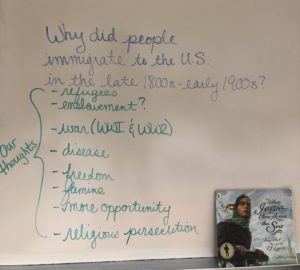 Why did people
immigrate to the U.S.
in the late 1800s-early 1900s?
Our
thoughts
- refugees
- enslavement?
- war (WWI & WW2)
- disease
- freedom
- famine
- more opportunity
- religious persecution
When
Jessie
Came Across
the
Sea